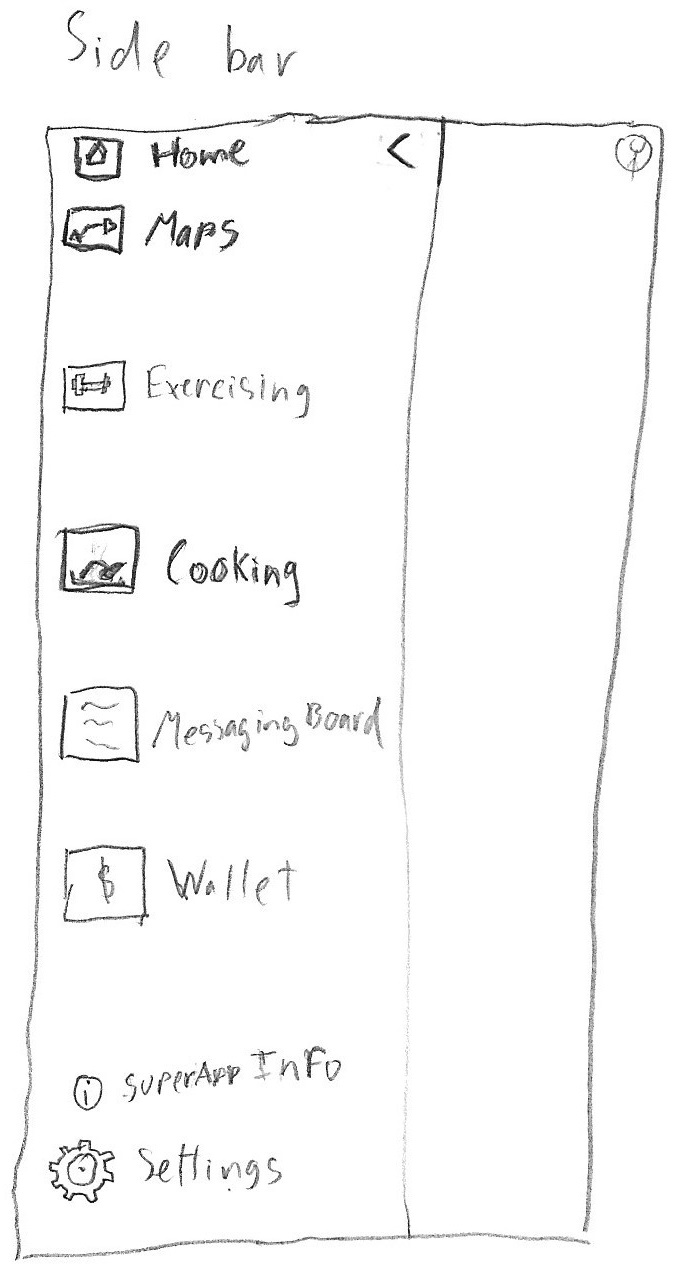 Side bar
Home <
Maps
Exercising
Cooking
Messaging Board
$ Wallet
i SuperApp Info
Settings